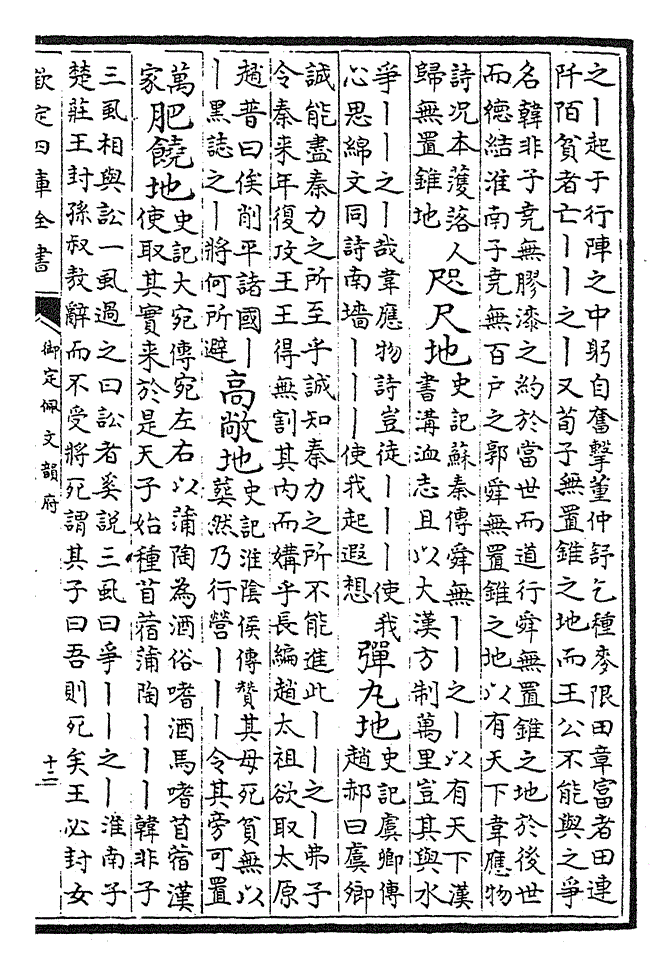 之丨起于行陣之中躬自奮擊董仲舒乞種麥限田章富者田連
阡陌貧者亡丨丨之丨又荀子無置錐之地而王公不能與之爭
名韓非子堯無膠漆之約於當世而道行舜無置錐之地於後世
而德結淮南子堯無百户之郭舜無置錐之地以有天下韋應物
詩况本濩落人
歸無置錐地
咫尺地
史記蘇秦傳舜無丨丨之丨以有天下漢
書溝洫志且以大漢方制萬里豈其與水
爭丨丨之丨哉韋應物詩豈徒丨丨丨使我
心思綿文同詩南墻丨丨丨使我起遐想
彈丸地
史記虞卿傳
趙郝曰虞卿
誠能盡秦力之所至乎誠知秦力之所不能進此丨丨之丨弗子
令秦来年復攻王王得無割其内而媾乎長編趙太祖欲取太原
趙普曰俟削平諸國丨
丨黑誌之丨將何所避
高敞地
史記淮陰侯傳贊其母死貧無以
葬然乃行營丨丨丨令其旁可置
萬
家
肥饒地
史記大宛傳宛左右以蒲陶為酒俗嗜酒馬嗜苜蓿漢
使取其實来於是天子始種苜蓿蒲陶丨丨丨韓非子
三虱相與訟一虱過之曰訟者奚説三虱曰爭丨丨之丨淮南子
楚莊王封孫叔敖辭而不受將死謂其子曰吾則死矣王必封女
欽定四庫全書
御定佩文韻府
十二